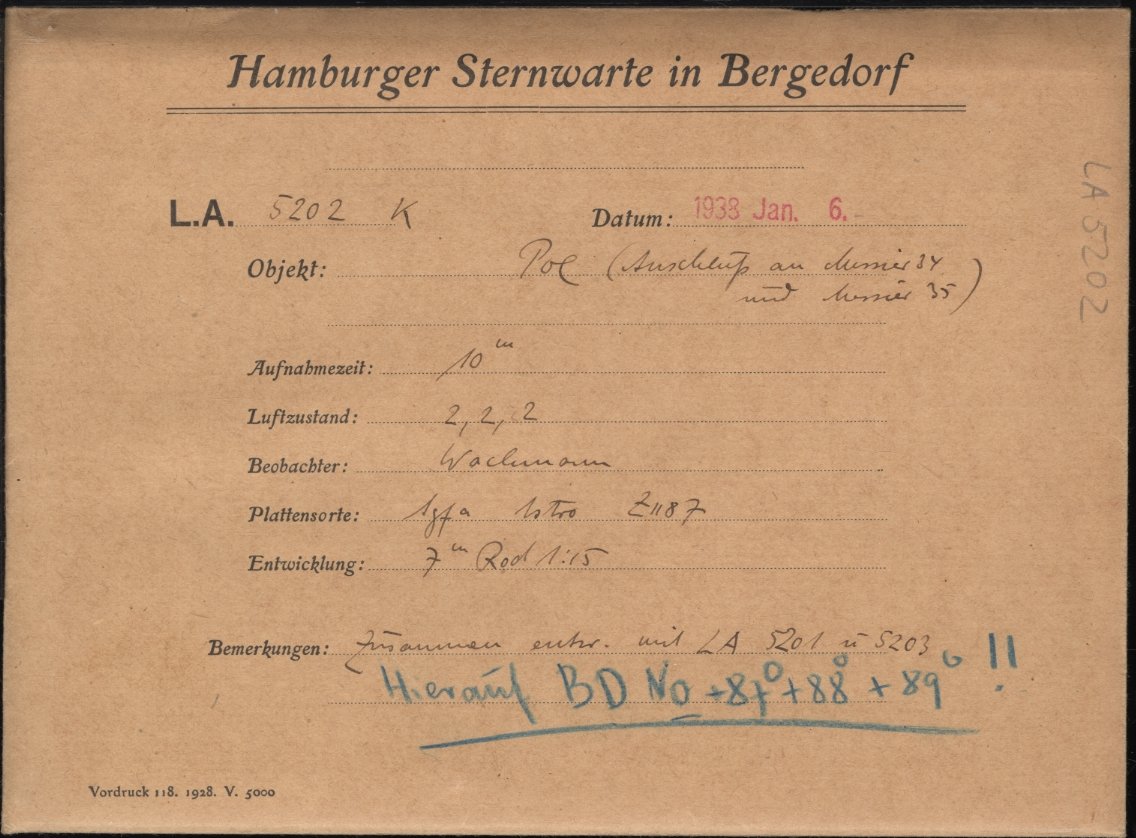 Hamburger Sternwarte in Bergedorf
L.A. 5202 K
Datum: 1938 Jan. 6.
Objekt: Pol (Anschluß an Messier 34
und Messier 35)
Aufnahmezeit: 10ᵐ
Luftzustand: 2, 2, 2
Beobachter: Wachmann
Plattensorte: Agfa Astro Z1187
Entwicklung: 7ᵐ Rod 1:15
Bemerkungen: Zusammen entw. mit LA 5201 u 5203
Hierauf BD No +87° +88° + 89° !!
Vordruck 118. 1928. V. 5000
LA 5202